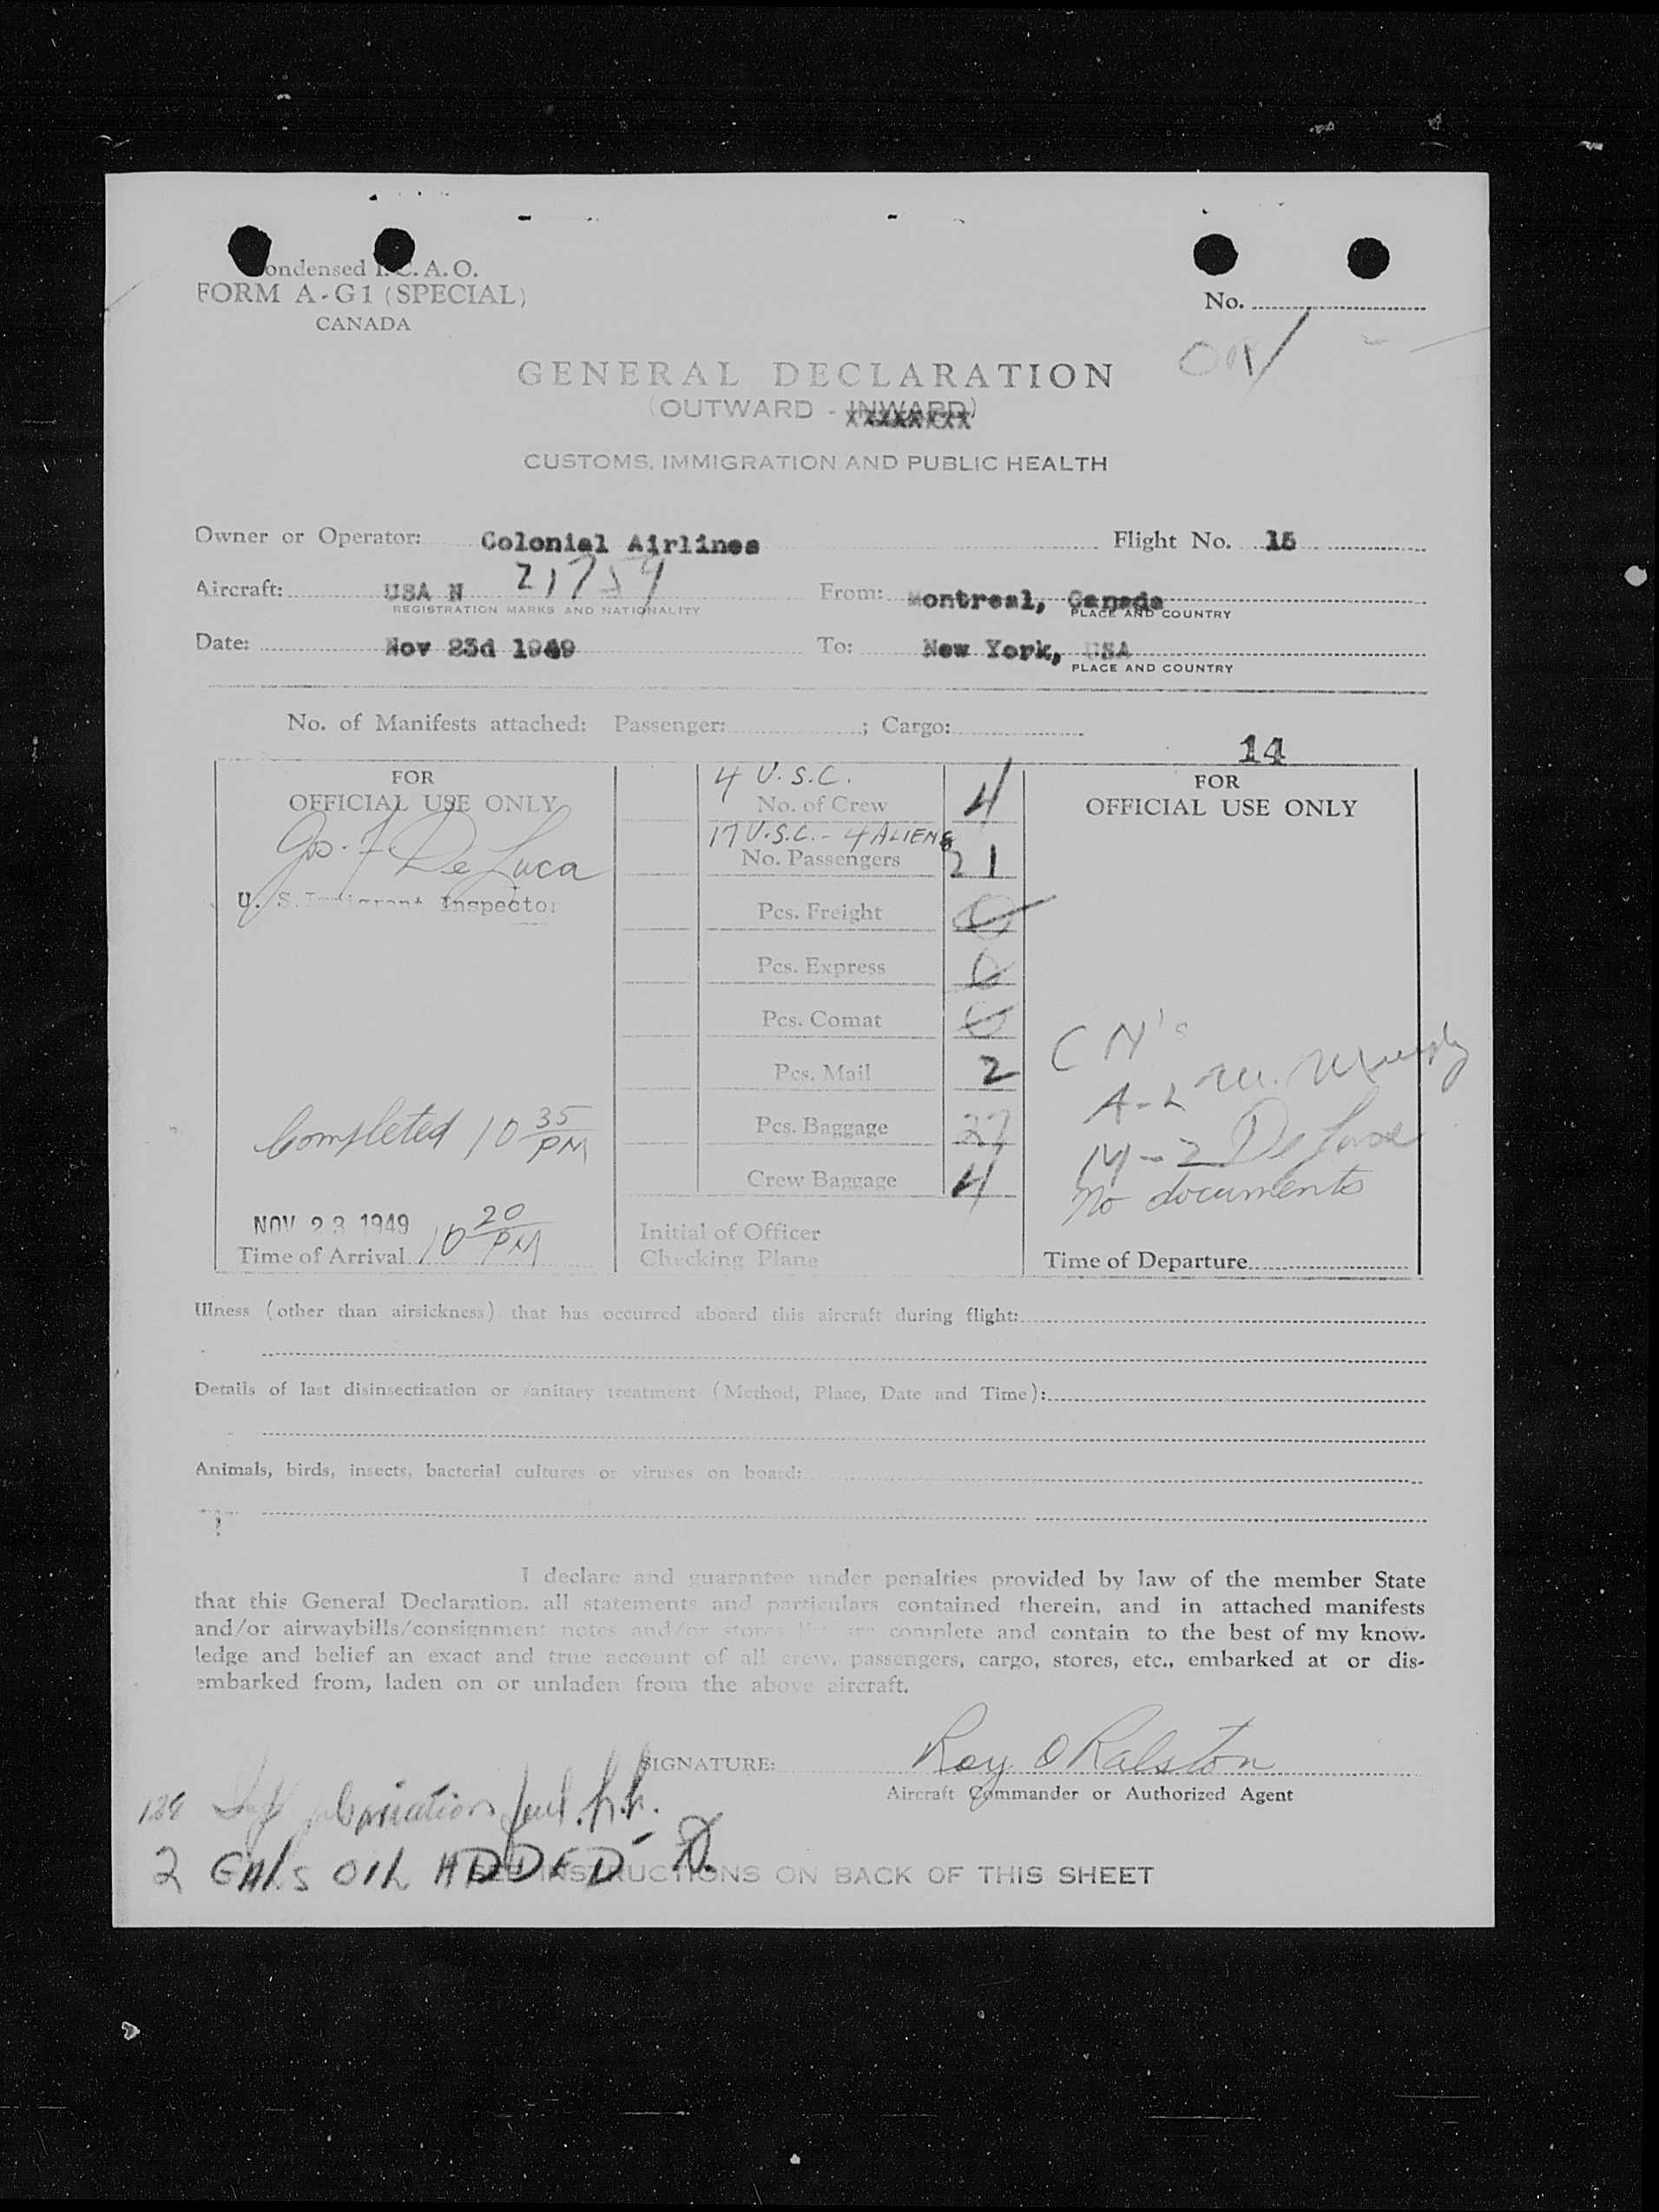 Condensed I.C.A.O.
FORM A-G1 (SPECIAL)
CANADA
No.
GENERAL DECLARATION
(OUTWARD - INWARD)
CUSTOMS, IMMIGRATION AND PUBLIC HEALTH
Owner or Operator: Colonial Airlines Flight No. 15
Aircraft: USA N 21759 From: Montreal, Canada
REGISTRATION MARKS AND NATIONALITY PLACE AND COUNTRY
Date: Nov 23d 1949 To: New York, USA
PLACE AND COUNTRY
No. of Manifests attached: Passenger: ; Cargo:
14
FOR
OFFICIAL USE ONLY
Jos. F De Luca
U. S. Immigrant Inspector
Completed 10 35 PM
NOV 23 1949 10 20 PM
Time of Arrival
4 U.S.C.
No. of Crew 4
17 U.S.C. - 4 ALIENS
No. Passengers 21
Pcs. Freight 0
Pcs. Express 0
Pcs. Comat 0
Pcs. Mail 2
Pcs. Baggage 27
Crew Baggage 4
Initial of Officer
Checking Plane
FOR
OFFICIAL USE ONLY
CN's
A-2 M. Murphy
M-2 De Luca
No documents
Time of Departure
Illness (other than airsickness) that has occurred aboard this aircraft during flight:
Details of last disinsectization or sanitary treatment (Method, Place, Date and Time):
Animals, birds, insects, bacterial cultures or viruses on board:
I declare and guarantee under penalties provided by law of the member State
that this General Declaration, all statements and particulars contained therein, and in attached manifests
and/or airwaybills/consignment notes and/or stores list are complete and contain to the best of my know-
ledge and belief an exact and true account of all crew, passengers, cargo, stores, etc., embarked at or dis-
embarked from, laden on or unladen from the above aircraft.
SIGNATURE: Roy O Ralston
Aircraft Commander or Authorized Agent
aviation fuel
2 GALS OIL ADDED
SEE INSTRUCTIONS ON BACK OF THIS SHEET